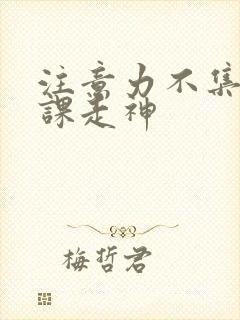 注意力不集
課走神
梅哲君